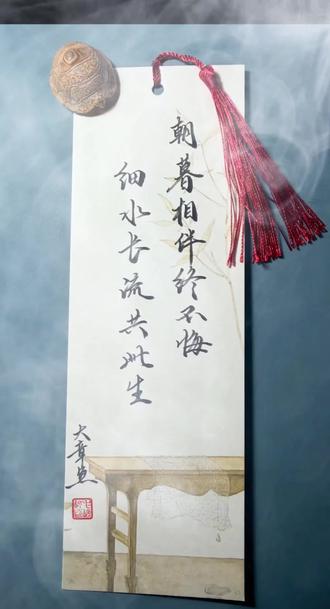 朝暮相伴终不悔
细水长流共此生
大章